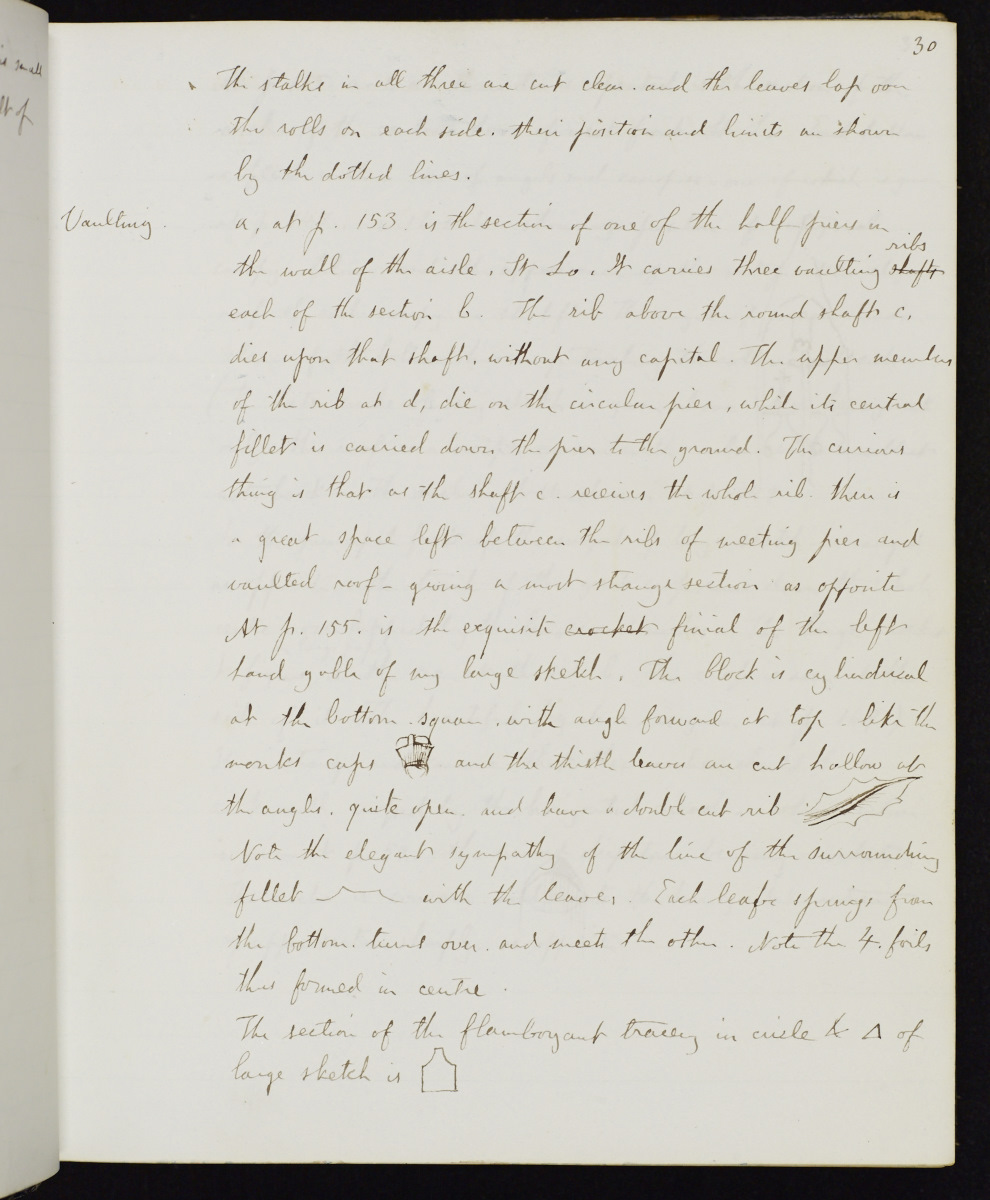 30
The stalks in all three are cut clear. and the leaves lap over
the rolls on each side. their position and limits are shown
by the dotted lines.
Vaulting.
a, at p. 153. is the section of one of the half piers in
the wall of the aisle. St Lo. It carries three vaulting shafts ribs
each of the section b. The rib above the round shaft c,
dies upon that shaft, without any capital. The upper members
of the rib at d, die on the circular pier, while its central
fillet is carried down the pier to the ground. The curious
thing is that as the shaft c. receives the whole rib. there is
a great space left between the ribs of meeting pier and
vaulted roof - giving a most strange section as opposite
At p. 155. is the exquisite crocket finial of the left
hand gable of my large sketch. The block is cylindrical
at the bottom. square. with angle forward at top. like the
monks caps and the thistle leaves are cut hollow at
the angles. quite open. and have a double cut rib
Note the elegant sympathy of the line of the surrounding
fillet with the leaves. Each leafre springs from
the bottom. turns over. and meets the other. Note the 4. foils
thus formed in centre.
The section of the flamboyant tracery in circle & Δ of
large sketch is